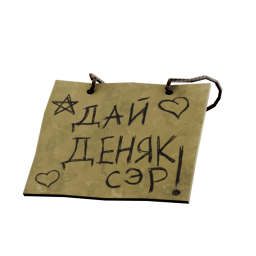 ДАЙ
ДЕНЯК
СЭР!